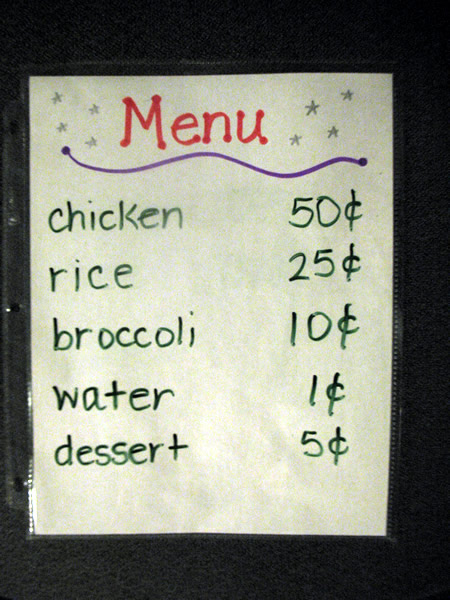 Menu
chicken 50¢
rice 25¢
broccoli 10¢
water 1¢
dessert 5¢